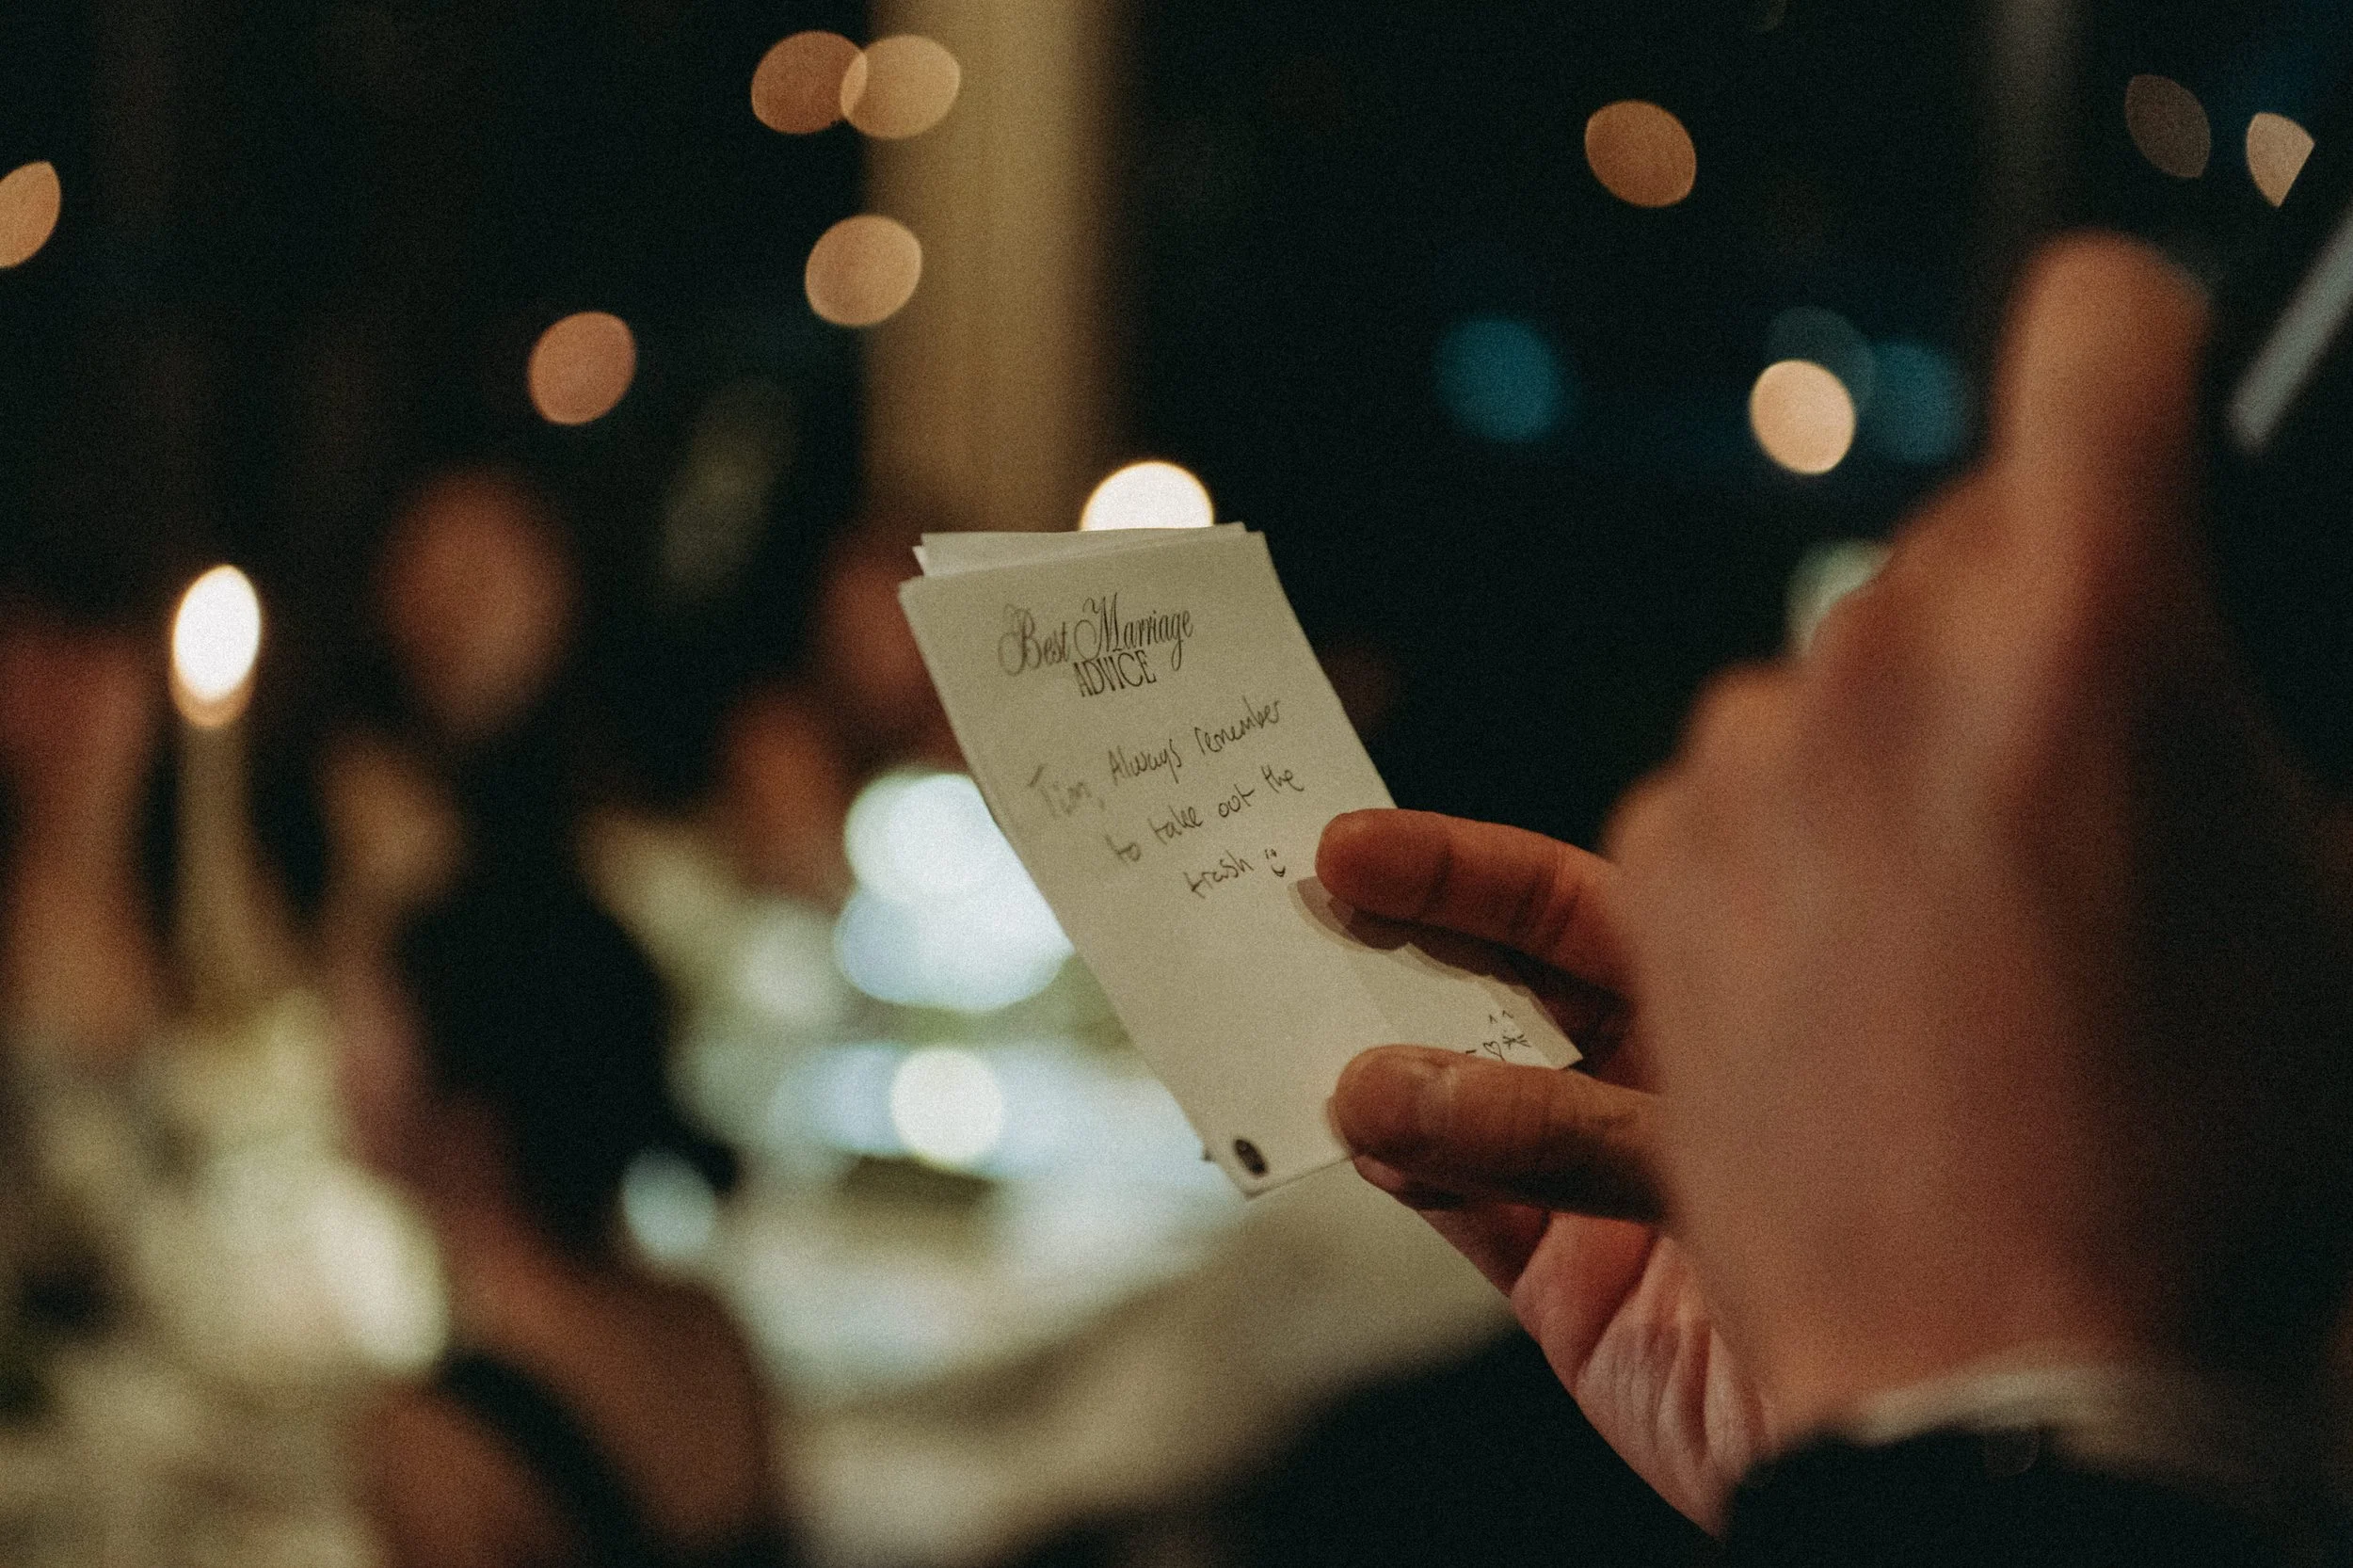 Best Marriage
ADVICE
Tim, Always remember
to take out the
trash